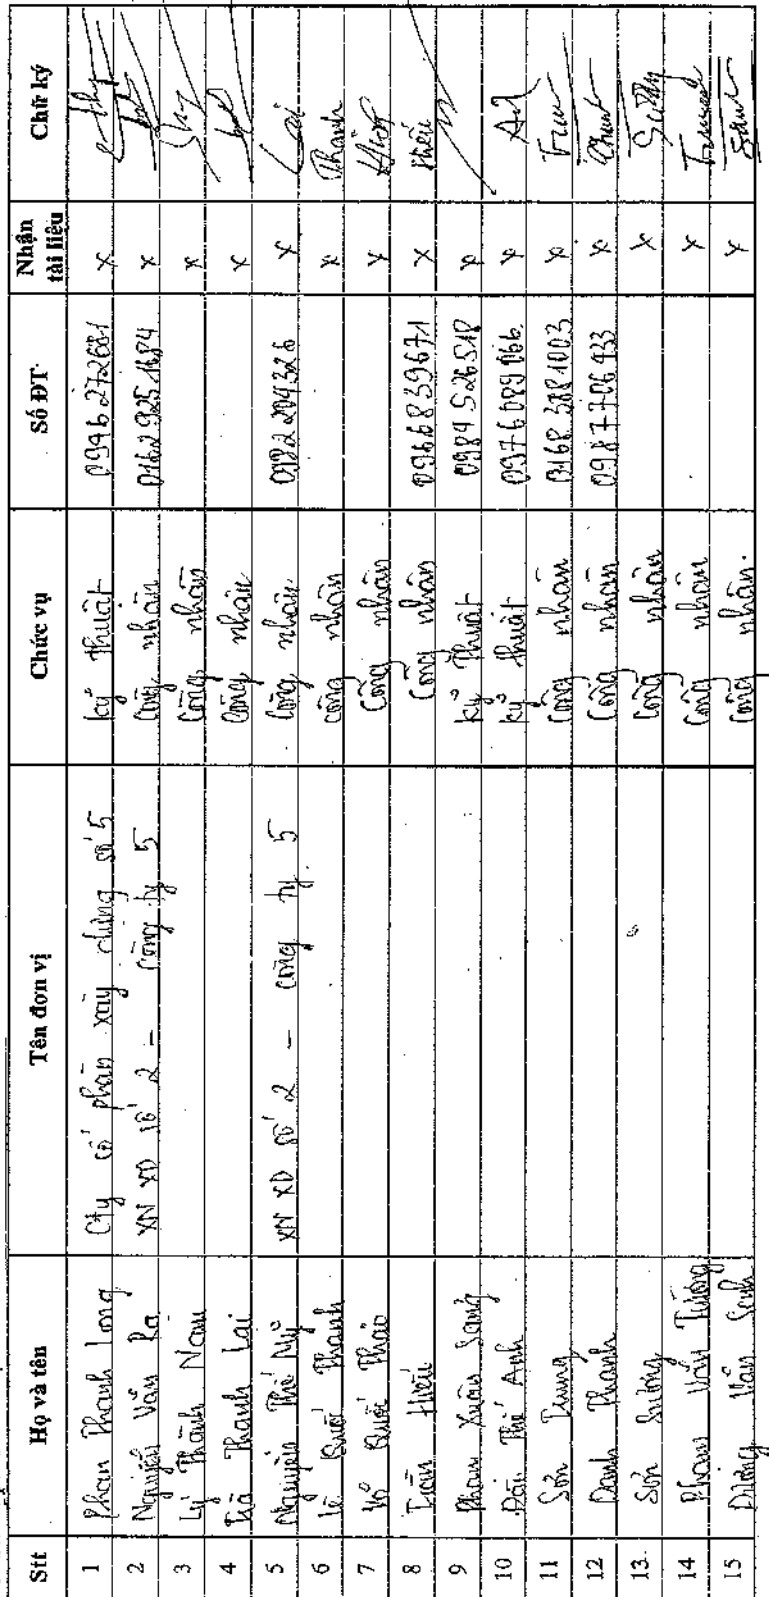 Stt Họ và tên Tên đơn vị Chức vụ Số ĐT Nhận tài liệu Chữ ký
1 Phan Thanh Long Cty cổ phần xây dựng số 5 kỹ thuật 0946272681 x
2 Nguyễn Văn Ra XN XD số 2 - Công ty 5 Công nhân 01629251684 x
3 Lý Thành Nam Công nhân x
4 Trà Thanh Lai Công nhân x
5 Nguyễn Thế Mỹ XN XD số 2 - công ty 5 Công nhân 0982204326 x
6 Lê Quốc Thanh công nhân x Thanh
7 Võ Quốc Thảo Công nhân x
8 Trần Hiếu Công nhân 0966839671 x Hiếu
9 Phan Xuân Sang kỹ thuật 0984526518 x
10 Thế Anh kỹ thuật 0976089066 x
11 Sơn Trung Công nhân x
12 Danh Thanh Công nhân 0987706433 x
13 Sơn Công nhân x
14 Phan Văn Tường Công nhân x
15 Dương Văn công nhân. x